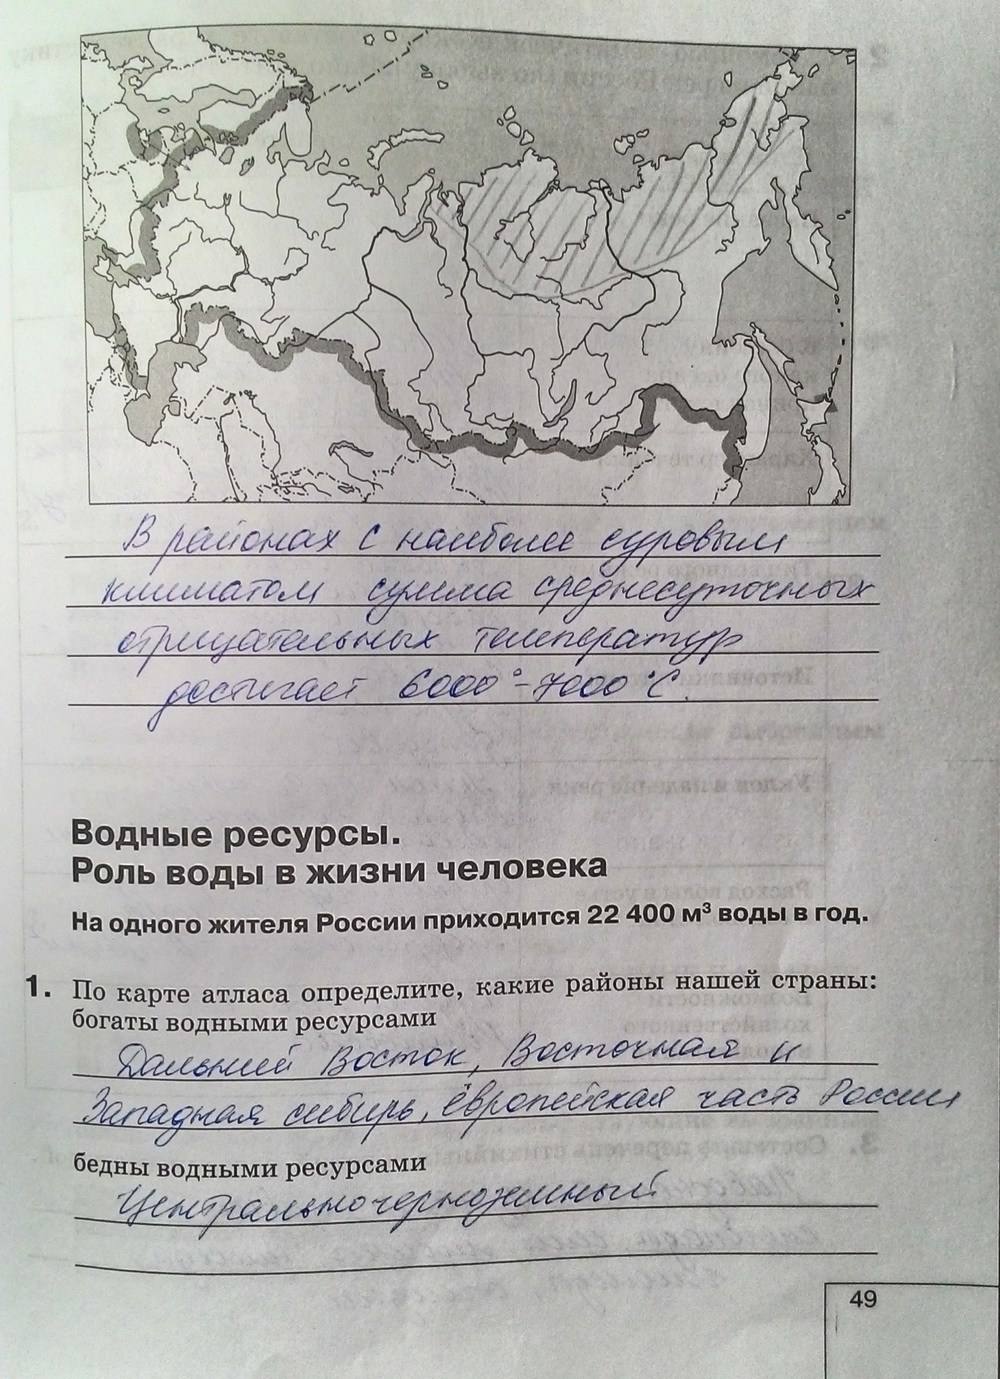 В районах с наиболее суровым
климатом сумма среднесуточных
отрицательных температур
достигает 6000° - 7000 °С.
Водные ресурсы.
Роль воды в жизни человека
На одного жителя России приходится 22 400 м³ воды в год.
1. По карте атласа определите, какие районы нашей страны:
богаты водными ресурсами
Дальний Восток, Восточная и
Западная сибирь, европейская часть России
бедны водными ресурсами
Центральночерноземный
49